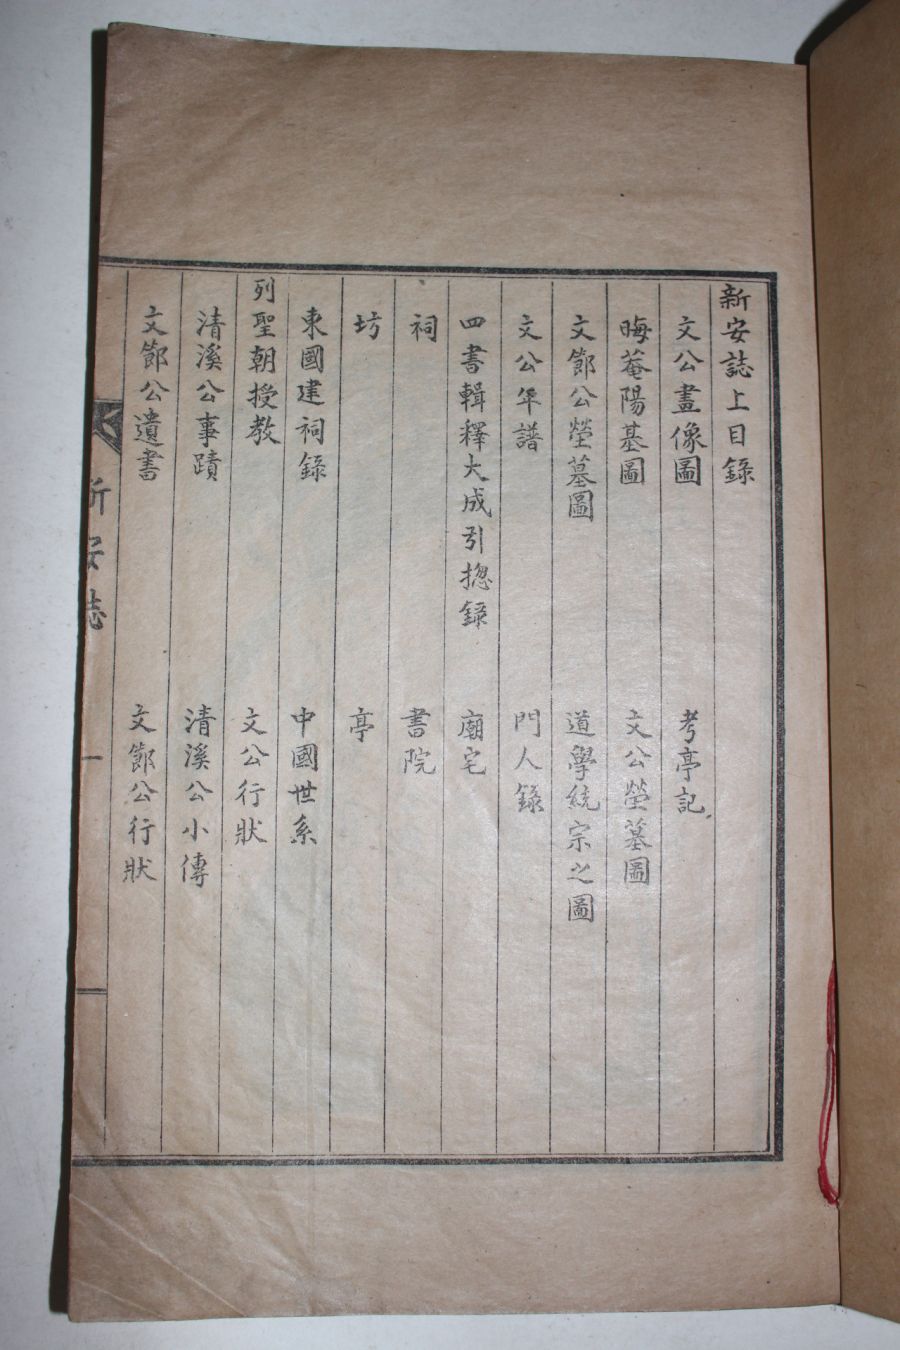 新安誌上目錄
文公畫像圖 考亭記
晦菴陽基圖 文公塋墓圖
文節公塋墓圖 道學統宗之圖
文公年譜 門人錄
四書輯釋大成引揔錄 廟宅
祠 書院
坊 亭
東國建祠錄 中國世系
列聖朝授教 文公行狀
清溪公事蹟 清溪公小傳
文節公遺書 文節公行狀
新安誌 一